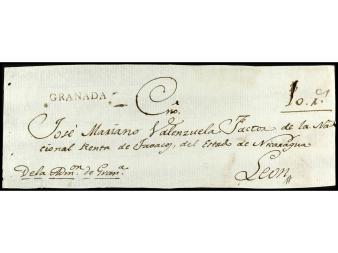 GRANADA.
C.no
José Mariano Valenzuela Factor de la Na-
cional Renta de Tavaco, del Estado de Nicaragua
Leon
De la Adm.on de Gran.a